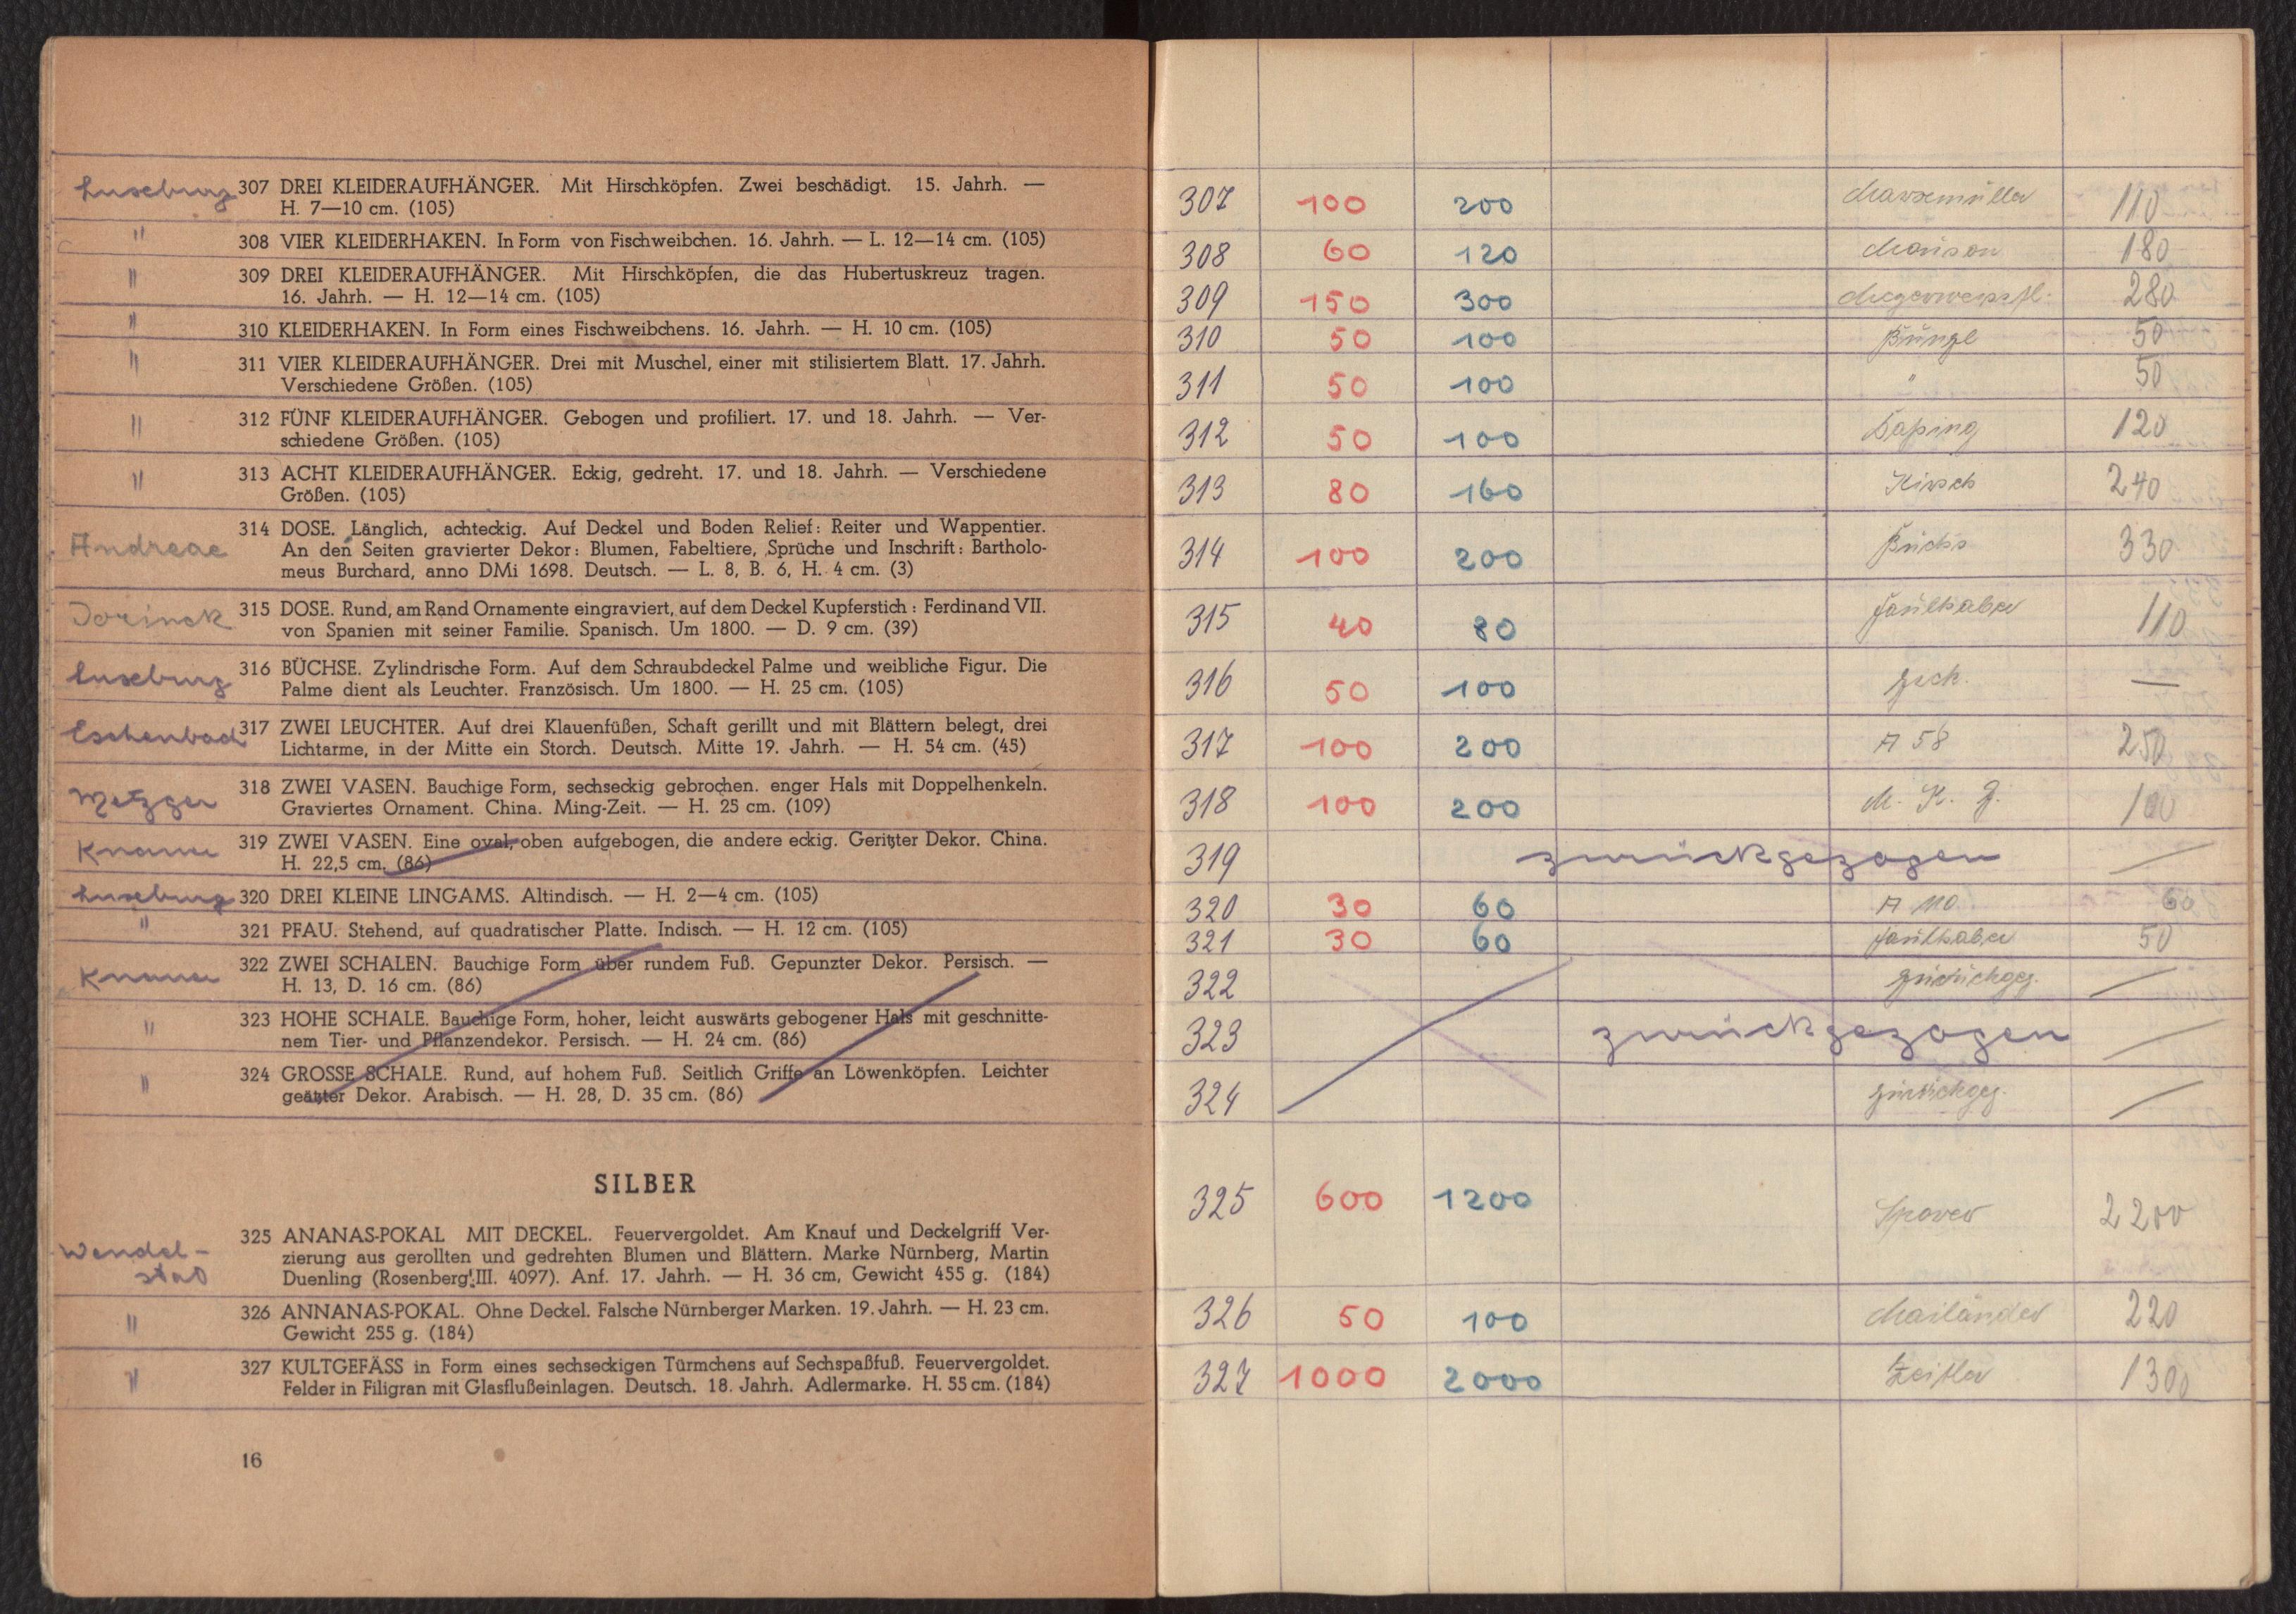 Luxeburg 307 DREI KLEIDERAUFHÄNGER. Mit Hirschköpfen. Zwei beschädigt. 15. Jahrh. —
H. 7—10 cm. (105)
" 308 VIER KLEIDERHAKEN. In Form von Fischweibchen. 16. Jahrh. — L. 12—14 cm. (105)
" 309 DREI KLEIDERAUFHÄNGER. Mit Hirschköpfen, die das Hubertuskreuz tragen.
16. Jahrh. — H. 12—14 cm. (105)
" 310 KLEIDERHAKEN. In Form eines Fischweibchens. 16. Jahrh. — H. 10 cm. (105)
" 311 VIER KLEIDERAUFHÄNGER. Drei mit Muschel, einer mit stilisiertem Blatt. 17. Jahrh.
Verschiedene Größen. (105)
" 312 FÜNF KLEIDERAUFHÄNGER. Gebogen und profiliert. 17. und 18. Jahrh. — Ver-
schiedene Größen. (105)
" 313 ACHT KLEIDERAUFHÄNGER. Eckig, gedreht. 17. und 18. Jahrh. — Verschiedene
Größen. (105)
Andreae 314 DOSE. Länglich, achteckig. Auf Deckel und Boden Relief: Reiter und Wappentier.
An den Seiten gravierter Dekor: Blumen, Fabeltiere, Sprüche und Inschrift: Bartholo-
meus Burchard, anno DMi 1698. Deutsch. — L. 8, B. 6, H. 4 cm. (3)
Dorinck 315 DOSE. Rund, am Rand Ornamente eingraviert, auf dem Deckel Kupferstich: Ferdinand VII.
von Spanien mit seiner Familie. Spanisch. Um 1800. — D. 9 cm. (39)
Luxeburg 316 BÜCHSE. Zylindrische Form. Auf dem Schraubdeckel Palme und weibliche Figur. Die
Palme dient als Leuchter. Französisch. Um 1800. — H. 25 cm. (105)
Eschenbach 317 ZWEI LEUCHTER. Auf drei Klauenfüßen, Schaft gerillt und mit Blättern belegt, drei
Lichtarme, in der Mitte ein Storch. Deutsch. Mitte 19. Jahrh. — H. 54 cm. (45)
Metzger 318 ZWEI VASEN. Bauchige Form, sechseckig gebrochen. enger Hals mit Doppelhenkeln.
Graviertes Ornament. China. Ming-Zeit. — H. 25 cm. (109)
Knauer 319 ZWEI VASEN. Eine oval, oben aufgebogen, die andere eckig. Geritzter Dekor. China.
H. 22,5 cm. (86)
Luxeburg 320 DREI KLEINE LINGAMS. Altindisch. — H. 2—4 cm. (105)
" 321 PFAU. Stehend, auf quadratischer Platte. Indisch. — H. 12 cm. (105)
Knauer 322 ZWEI SCHALEN. Bauchige Form über rundem Fuß. Gepunzter Dekor. Persisch. —
H. 13, D. 16 cm. (86)
" 323 HOHE SCHALE. Bauchige Form, hoher, leicht auswärts gebogener Hals mit geschnitte-
nem Tier- und Pflanzendekor. Persisch. — H. 24 cm. (86)
" 324 GROSSE SCHALE. Rund, auf hohem Fuß. Seitlich Griffe an Löwenköpfen. Leichter
geätzter Dekor. Arabisch. — H. 28, D. 35 cm. (86)
SILBER
Wendel-
stad
325 ANANAS-POKAL MIT DECKEL. Feuervergoldet. Am Knauf und Deckelgriff Ver-
zierung aus gerollten und gedrehten Blumen und Blättern. Marke Nürnberg, Martin
Duenling (Rosenberg III. 4097). Anf. 17. Jahrh. — H. 36 cm, Gewicht 455 g. (184)
" 326 ANNANAS-POKAL. Ohne Deckel. Falsche Nürnberger Marken. 19. Jahrh. — H. 23 cm.
Gewicht 255 g. (184)
" 327 KULTGEFÄSS in Form eines sechseckigen Türmchens auf Sechspaßfuß. Feuervergoldet.
Felder in Filigran mit Glasflußeinlagen. Deutsch. 18. Jahrh. Adlermarke. H. 55 cm. (184)
16
307 100 200 110
308 60 120 180
309 150 300 280
310 50 100 Büngl 50
311 50 100 " 50
312 50 100 120
313 80 160 Hirsch 240
314 100 200 330
315 40 80 Faulhaber 110
316 50 100 —
317 100 200 A 58 250
318 100 200 M. K. G. 100
319 zurückgezogen
320 30 60 A 110 60
321 30 60 Faulhaber 50
322 zurückgez.
323 zurückgezogen
324 zurückgez.
325 600 1200 2200
326 50 100 Mailänder 220
327 1000 2000 Zeitler 1300